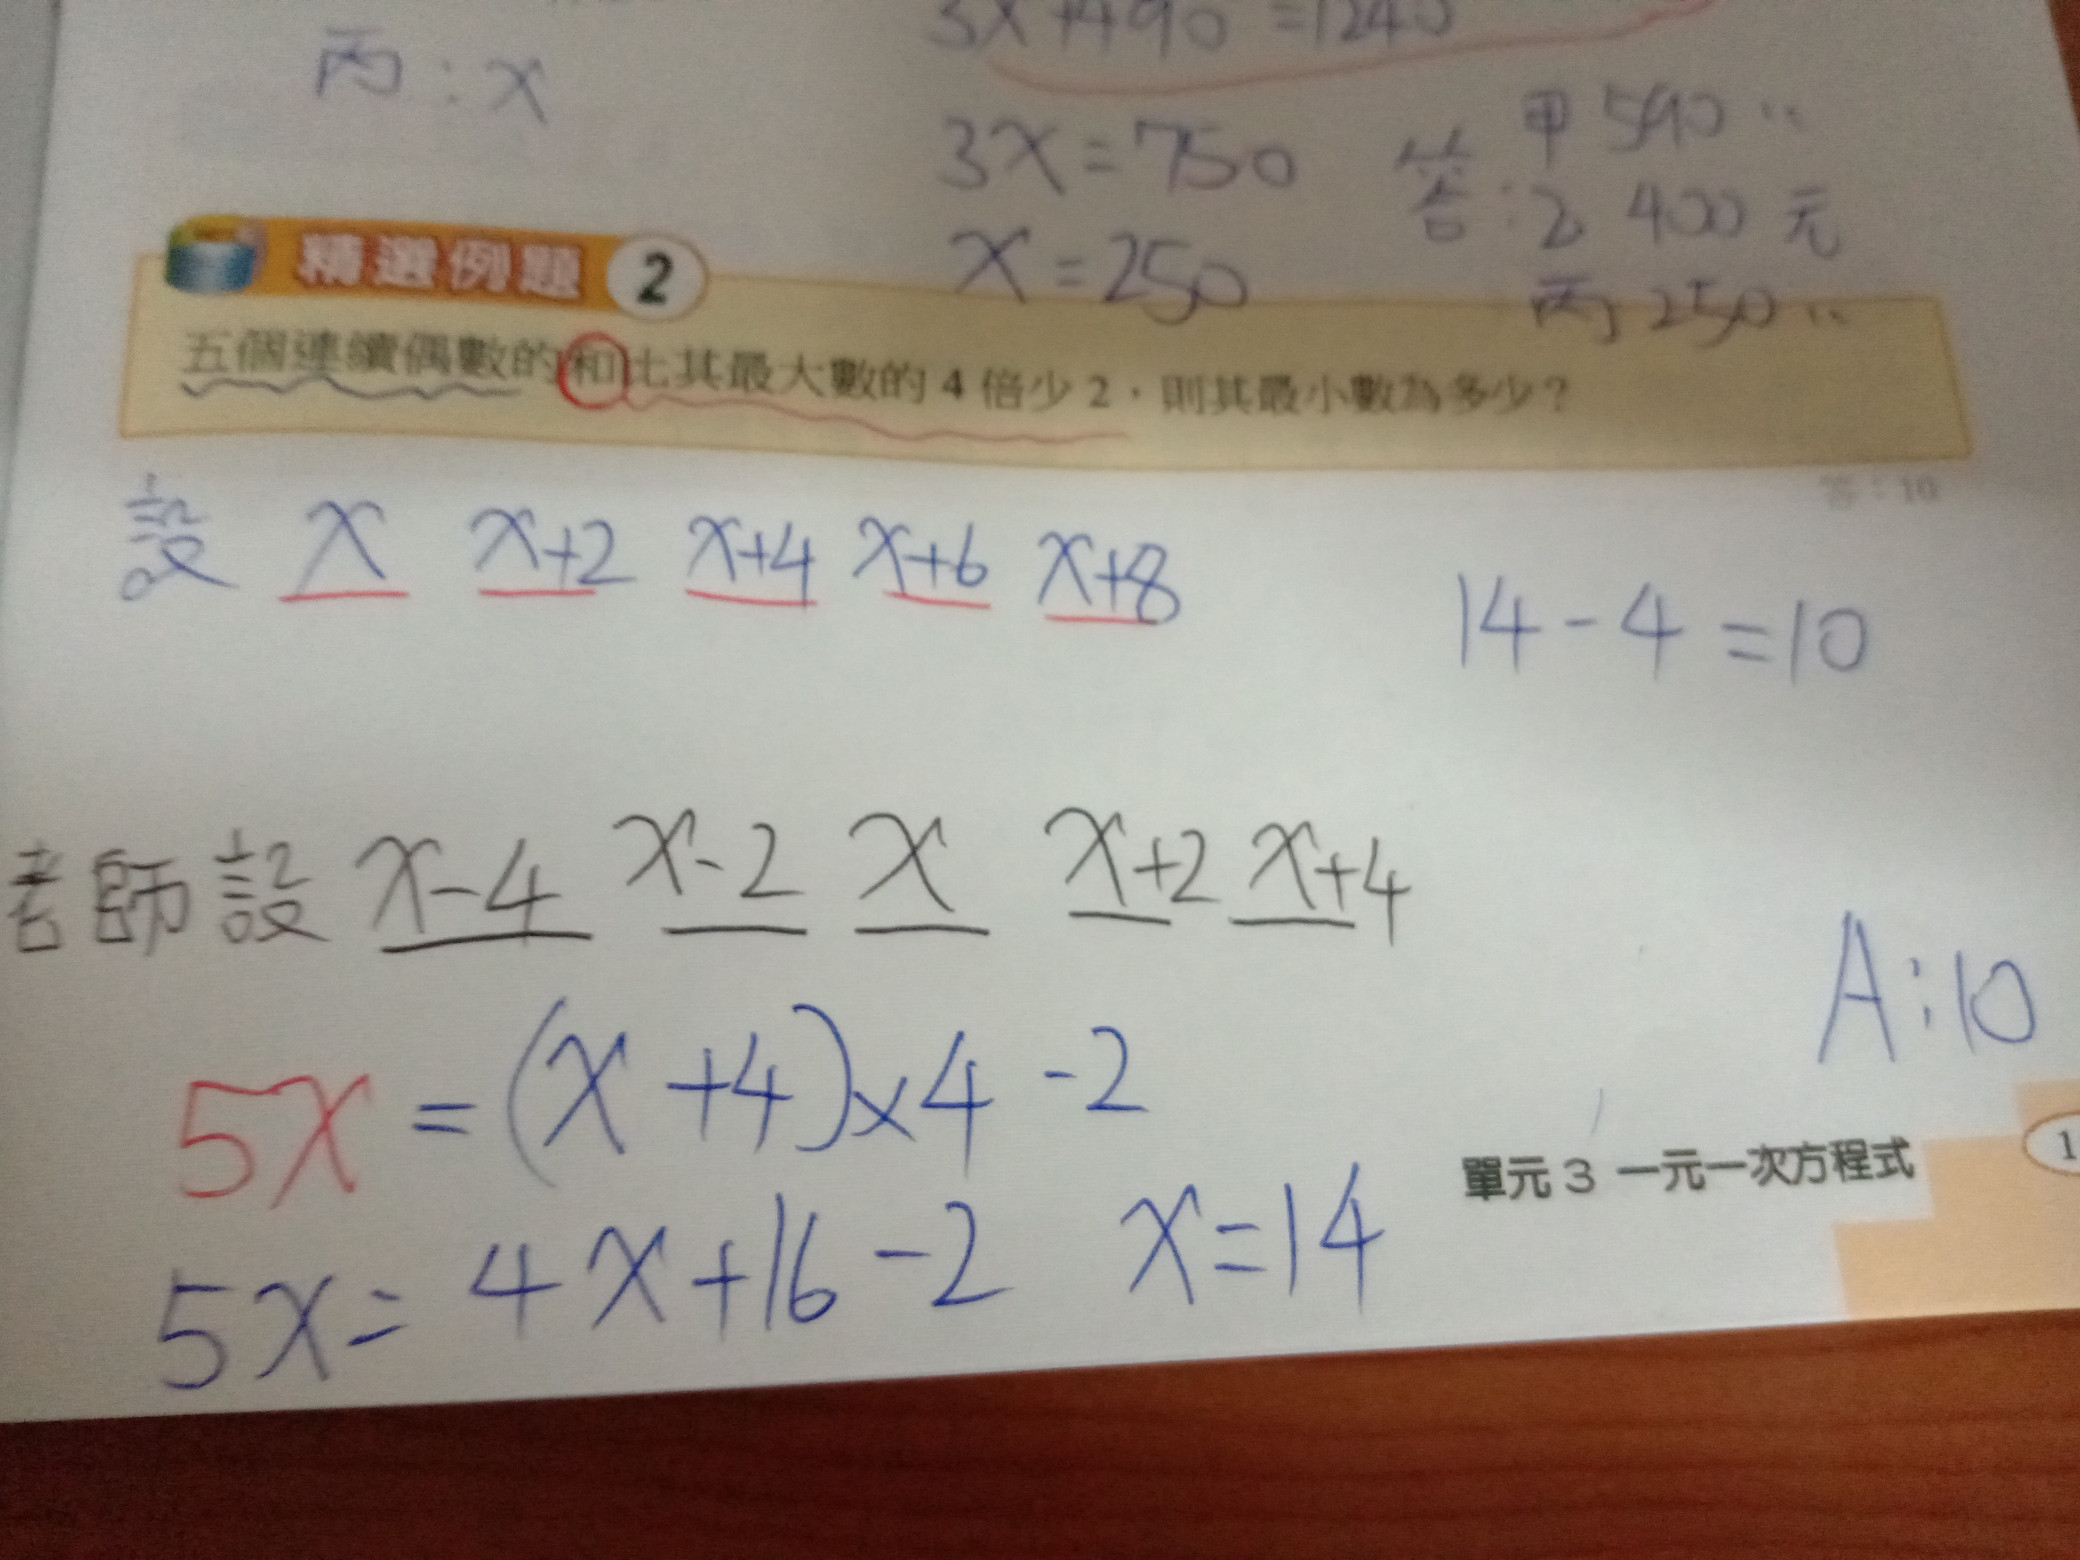 3x+490=1240
丙:x
3x=750
x=250
甲 590〃
答:乙 400 元
丙 250〃
精選例題 2
五個連續偶數的和比其最大數的 4 倍少 2,則其最小數為多少?
答:10
設 x x+2 x+4 x+6 x+8
14-4=10
老師設 x-4 x-2 x x+2 x+4
A:10
5x=(x+4)×4-2
5x=4x+16-2 x=14
單元 3 一元一次方程式
1